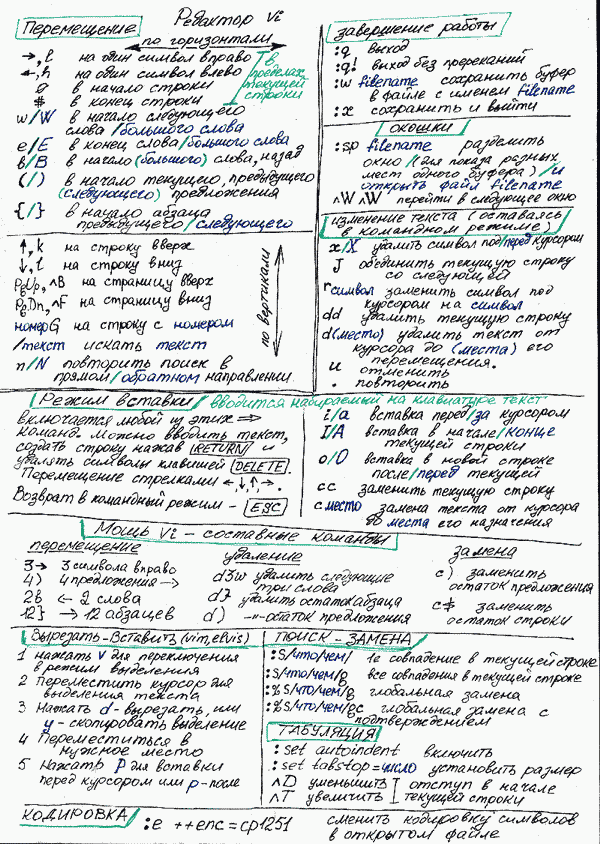 Редактор Vi
Перемещение
по горизонтали
→, l на один символ вправо
←, h на один символ влево
0 в начало строки
# в конец строки
в пределах
текущей
строки
w/W в начало следующего
слова/большого слова
e/E в конец слова/большого слова
b/B в начало (большого) слова, назад
(/) в начало текущего, предыдущего
(следующего) предложения
{/} в начало абзаца
предыдущего/следующего
↑, k на строку вверх
↓, l на строку вниз
PgUp, ^B на страницу вверх
PgDn, ^F на страницу вниз
номерG на строку с номером
/текст искать текст
n/N повторить поиск в
прямом/обратном направлении
по вертикали
завершение работы
:q выход
:q! выход без пререканий
:w filename сохранить буфер
в файле с именем filename
:x сохранить и выйти
окошки
:sp filename разделить
окно/(для показа разных
мест одного буфера)/и
открыть файл filename
^W ^W перейти в следующее окно
изменение текста (оставаясь
в командном режиме)
x/X удалить символ под/перед курсором
J объединить текущую строку
со следующей
rсимвол заменить символ под
курсором на символ
dd удалить текущую строку
d(место) удалить текст от
курсора до (места) его
перемещения.
u отменить
. повторить
Режим вставки/вводится набираемый на клавиатуре текст
включается любой из этих ⇒
команд. Можно вводить текст,
создать строку нажав RETURN и
удалять символы клавишей DELETE.
Перемещение стрелками ←, ↓, ↑, →.
Возврат в командный режим - ESC
i/a вставка перед/за курсором
I/A вставка в начале/конце
текущей строки
o/O вставка в новой строке
после/перед текущей
cc заменить текущую строку
c место замена текста от курсора
до места его назначения
Мощь Vi - составные команды
перемещение
3→ 3 символа вправо
4) 4 предложения →
2b ← 2 слова
12} → 12 абзацев
удаление
d3w удалить следующие
три слова
d} удалить остаток абзаца
d) -"- остаток предложения
замена
c) заменить
остаток предложения
c# заменить
остаток строки
Вырезать-вставить (vim, elvis)
1 нажать v для переключения
в режим выделения
2 Переместить курсор для
выделения текста
3 Нажать d - вырезать, или
y - скопировать выделение
4 Переместиться в
нужное место
5 Нажать P для вставки
перед курсором или p - после
ПОИСК - ЗАМЕНА
:s/что/чем/ 1е совпадение в текущей строке
:s/что/чем/g все совпадения в текущей строке
:%s/что/чем/g глобальная замена
:%s/что/чем/gc глобальная замена с
подтверждением
ТАБУЛЯЦИЯ
:set autoindent включить
:set tabstop=число установить размер
^D уменьшить отступ в начале
^T увеличить текущей строки
КОДИРОВКА/ :e ++enc=cp1251 сменить кодировку символов
в открытом файле